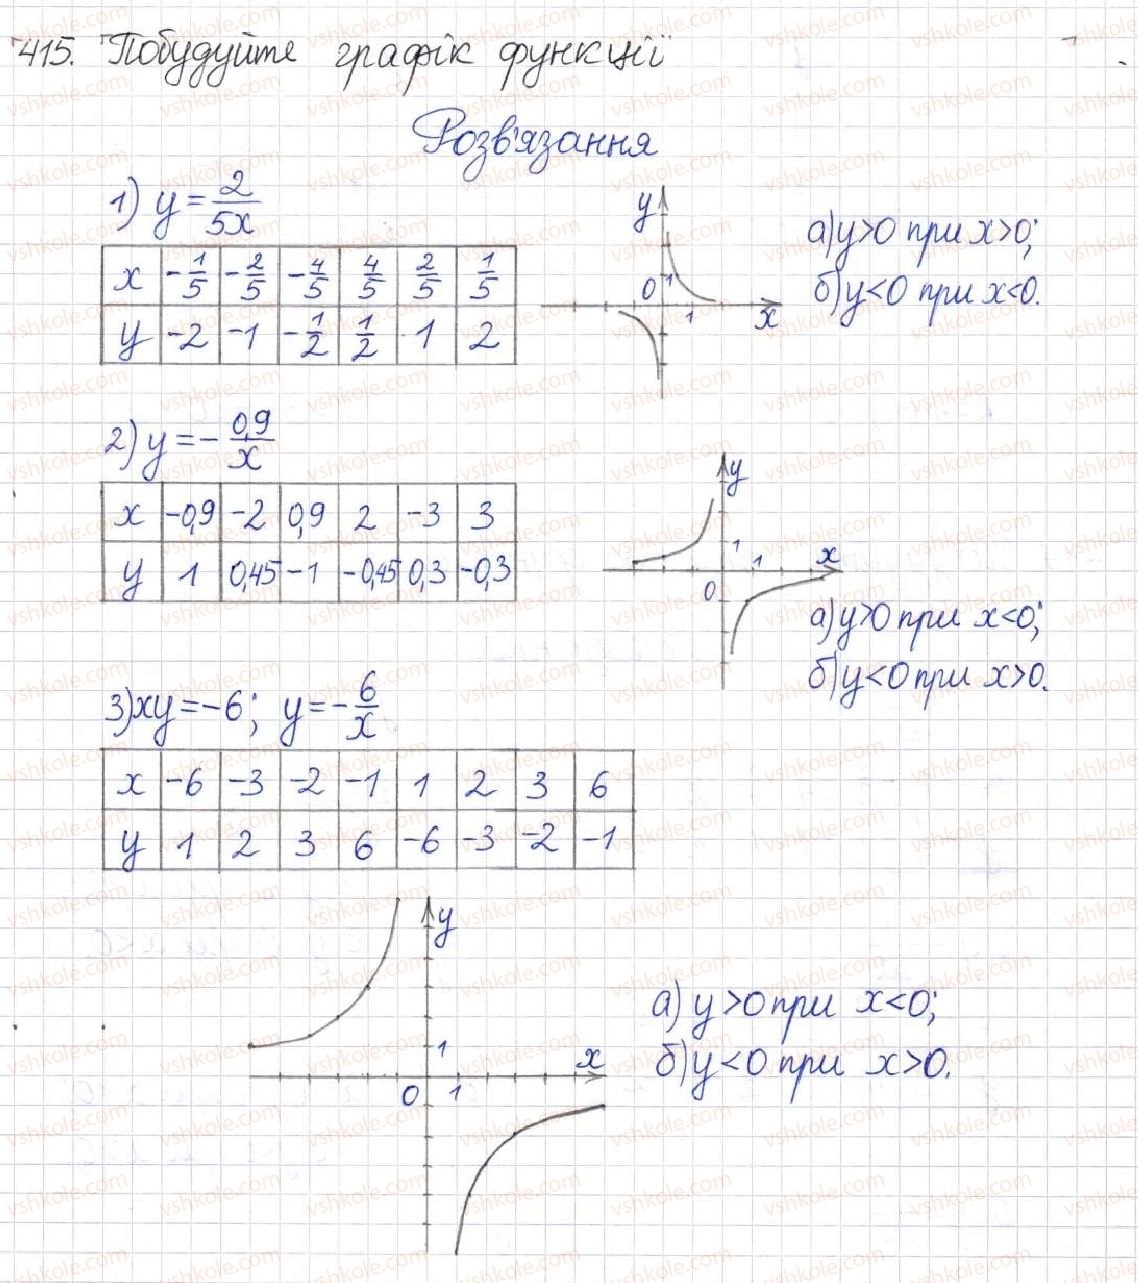 415. Побудуйте графік функції
Розв'язання
1) y = 2/(5x)
x | -1/5 | -2/5 | -4/5 | 4/5 | 2/5 | 1/5
y | -2 | -1 | -1/2 | 1/2 | 1 | 2
y
0 1
1 x
а) y>0 при x>0;
б) y<0 при x<0.
2) y = - 0,9/x
x | -0,9 | -2 | 0,9 | 2 | -3 | 3
y | 1 | 0,45 | -1 | -0,45 | 0,3 | -0,3
y
1 1 x
0
а) y>0 при x<0;
б) y<0 при x>0.
3) xy = -6; y = - 6/x
x | -6 | -3 | -2 | -1 | 1 | 2 | 3 | 6
y | 1 | 2 | 3 | 6 | -6 | -3 | -2 | -1
y
1 x
0 1
а) y>0 при x<0;
б) y<0 при x>0.
vshkole.com